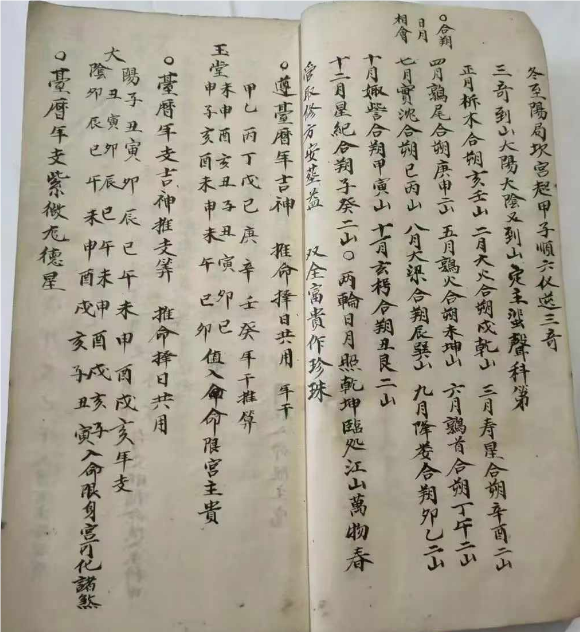 冬至陽局坎宮起甲子順六仪逆三奇
三奇到山太陽太陰又到山定主蜚聲科第
〇合朔
日月
相會
正月析木合朔亥壬山 二月大火合朔戌乾山 三月寿星合朔辛酉二山
四月鶉尾合朔庚申二山 五月鶉火合朔未坤山 六月鶉首合朔丁午二山
七月實沈合朔巳丙山 八月大梁合朔辰巽山 九月降娄合朔卯乙二山
十月娵訾合朔甲寅山 十一月玄枵合朔丑艮二山
十二月星紀合朔子癸二山〇两輪日月照乾坤臨処江山萬物春
管取修方安葬益 双全富貴作珍珠
〇遵臺曆年吉神 推命擇日共用 年干
甲乙丙丁戊己庚辛壬癸年干推算
玉堂 未申酉亥丑子丑寅卯巳
申子亥酉未申未午巳卯 值入命命限宮主貴
〇臺曆年支吉神推支算 推命擇日共用
太陽子丑寅卯辰巳午未申酉戌亥年支
丑寅卯辰巳午未申酉戌亥子
太陰卯辰巳午未申酉戌亥子丑寅入命限身宮可化諸煞
〇臺曆年支紫微龙德星